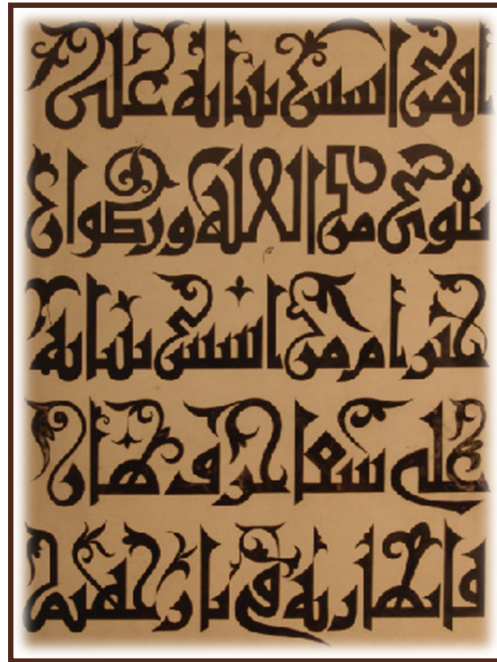 أفمن اسس بنيانه على
تقوى من الله ورضوان
خير أم من اسس بنيانه
على شفا جرف هار
فانهار به في نار جهنم